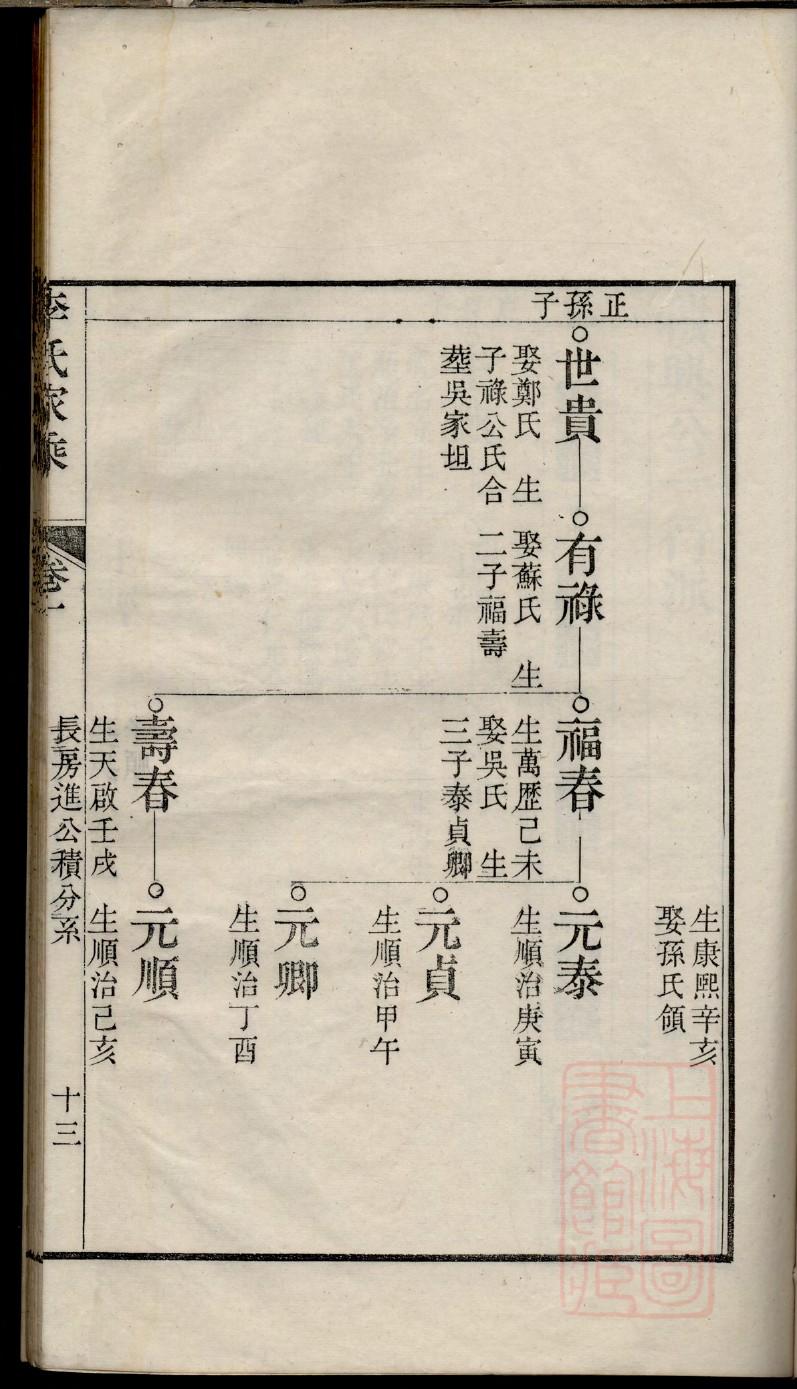 正孫子
生康熙辛亥
娶孫氏領
世貴
娶鄭氏 生
子祿公氏合
塟吳家坦
有祿
娶蘇氏 生
二子福壽
福春
生萬歷己未
娶吳氏 生
三子泰貞卿
元泰
生順治庚寅
元貞
生順治甲午
元卿
生順治丁酉
壽春
生天啟壬戌
元順
生順治己亥
李氏家乘
卷一
長房進公積分系
十三
上海圖
書館藏